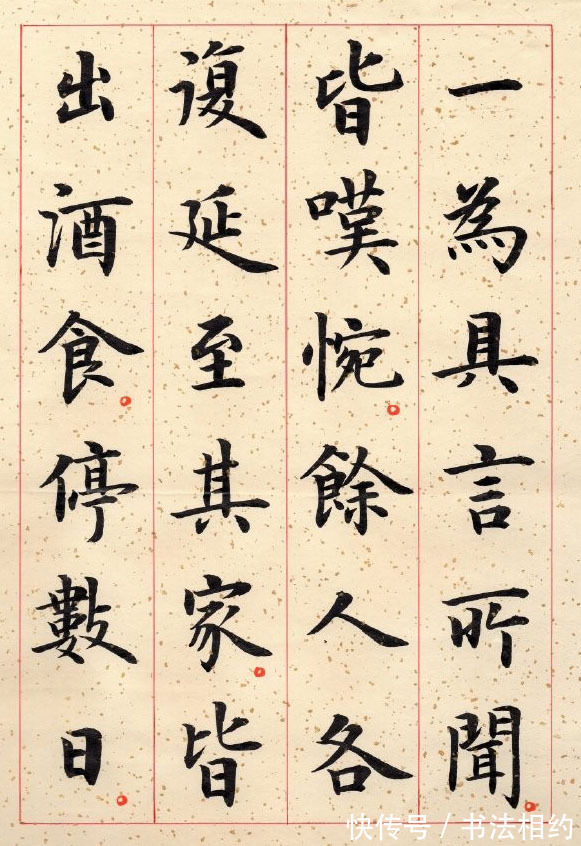 一為具言所聞
皆嘆惋餘人各
復延至其家皆
出酒食停數日
快传号 / 书法相约